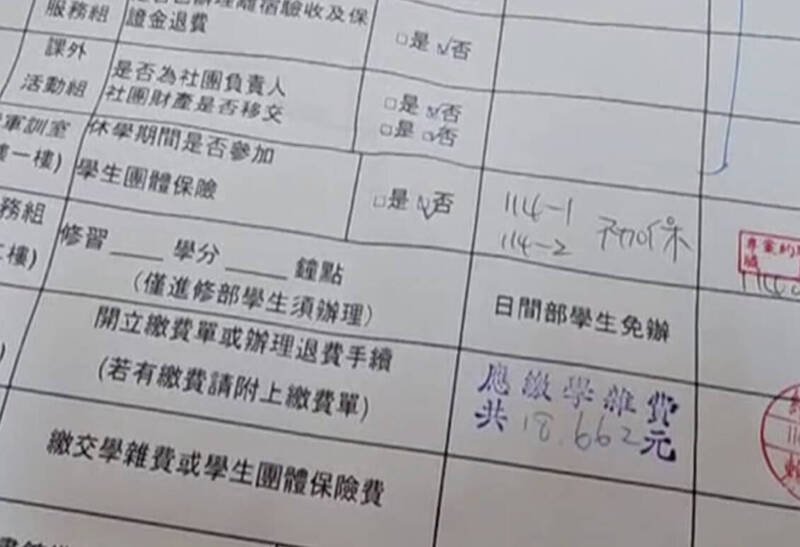 服務組
離宿驗收及保
證金退費
□是 ☑否
課外
活動組
是否為社團負責人
社團財產是否移交
□是 ☑否
□是 □否
軍訓室
樓一樓)
休學期間是否參加
學生團體保險
□是 ☑否
114-1
114-2
不加保
務組
樓)
修習____學分____鐘點
(僅進修部學生須辦理)
日間部學生免辦
開立繳費單或辦理退費手續
(若有繳費請附上繳費單)
應繳學雜費
共18,662元
繳交學雜費或學生團體保險費